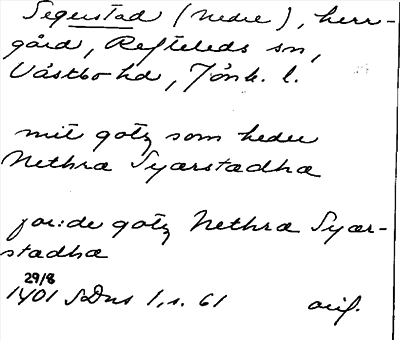 Segerstad (Nedre), herr-
gård, Refteleds sn,
Västbo hd, Jönk. l.
mit gotz som heder
Nethra Syærstadha
for:de gotz Nethra Syær-
stadha
29/8
1401 SDns 1, s. 61 orig.